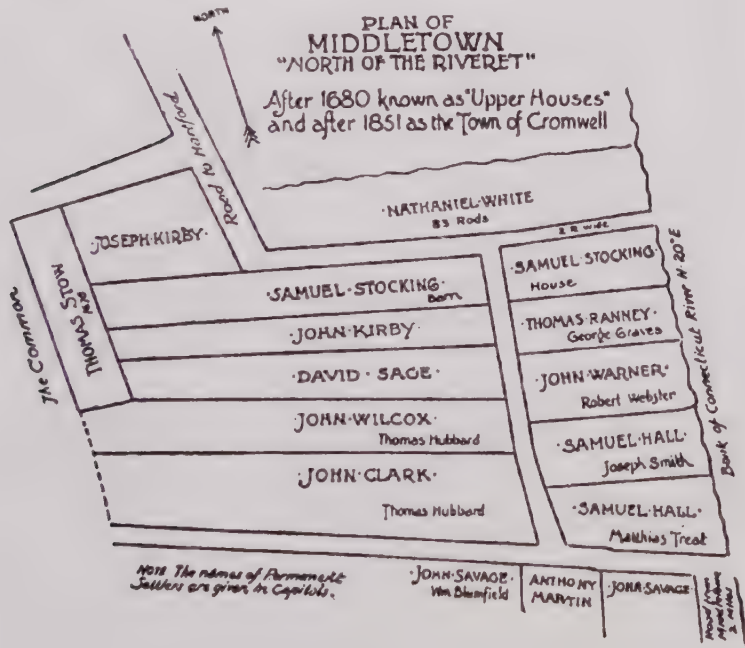 NORTH
PLAN OF
MIDDLETOWN
"NORTH OF THE RIVERET"
After 1680 known as "Upper Houses"
and after 1851 as the Town of Cromwell
Road to Hartford
·NATHANIEL·WHITE
83 Rods
2 R wide
·JOSEPH·KIRBY·
THOMAS STOW
The Common
·SAMUEL·STOCKING·
Barn
·JOHN·KIRBY·
·DAVID·SAGE·
·JOHN·WILCOX·
Thomas Hubbard
·JOHN·CLARK·
Thomas Hubbard
·SAMUEL·STOCKING
House
·THOMAS·RANNEY·
George Graves
·JOHN·WARNER·
Robert Webster
·SAMUEL·HALL·
Joseph Smith
·SAMUEL·HALL·
Matthias Treat
Bank of Connecticut River N. 20° E
NOTE The names of Permanent
Settlers are given in Capitals.
·JOHN·SAVAGE·
Wm Blumfield
ANTHONY
MARTIN
·JOHN·SAVAGE·
Road from
Middletown
2 Miles